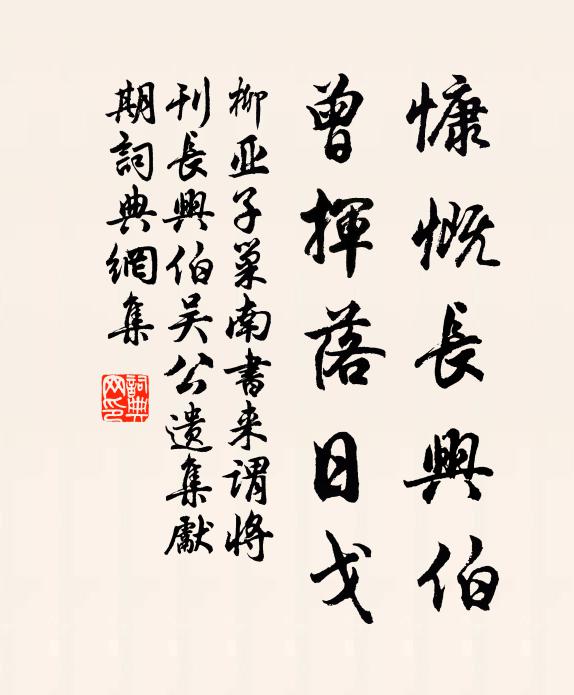 慷慨長興伯
曾揮落日戈
柳亚子巢南書来謂将
刊長興伯吴公遗集獻
期詞典網集
詞典網印